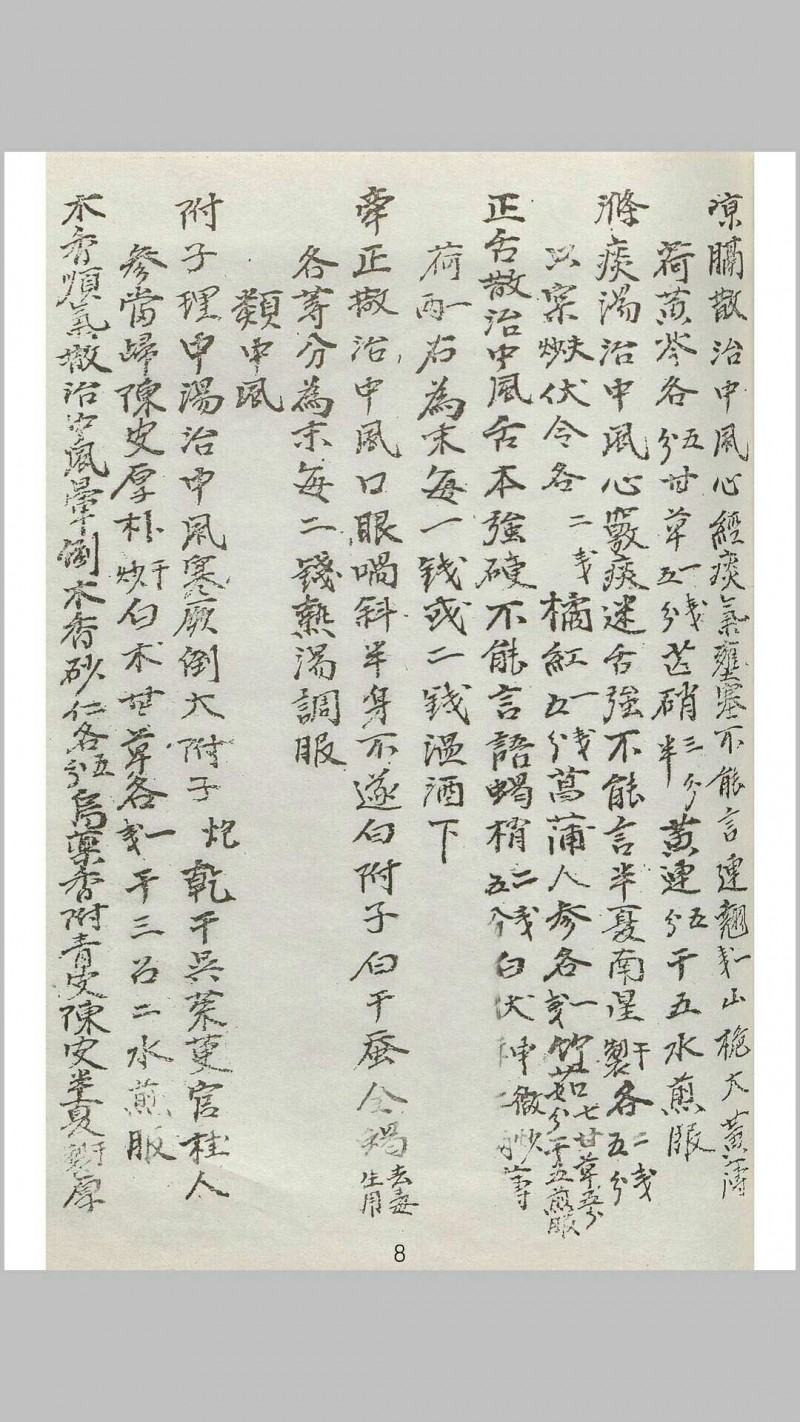 凉膈散治中風心經痰氣壅塞不能言連翹一戋山梔大黃薄
荷黃芩各五分甘草一戋五分芒硝三分半黃連五分干五水煎服
滌痰湯治中風心竅痰迷舌強不能言半夏南星干製各二戋五分
只宲麩炒伏令各二戋橘紅一戋五分菖蒲人參各一戋竹茹七分甘草五分干五煎服
正舌散治中風舌本強硬不能言語蝎梢二戋五分白伏神微炒薄
荷一兩右為末每一錢或二錢溫酒下
牽正散治中風口眼喎斜半身不遂白附子白干蚕全蝎去毒生用
各等分為末每二錢熱湯調服
類中風
附子理中湯治中風寒厥倒大附子炮乾干吳茱萸官桂人
參當歸陳皮厚朴干炒白术甘草各一戋干三召二水煎服
木香順氣散治中風暈倒木香砂仁各五分烏藥香附青皮陳皮半夏干製厚
8